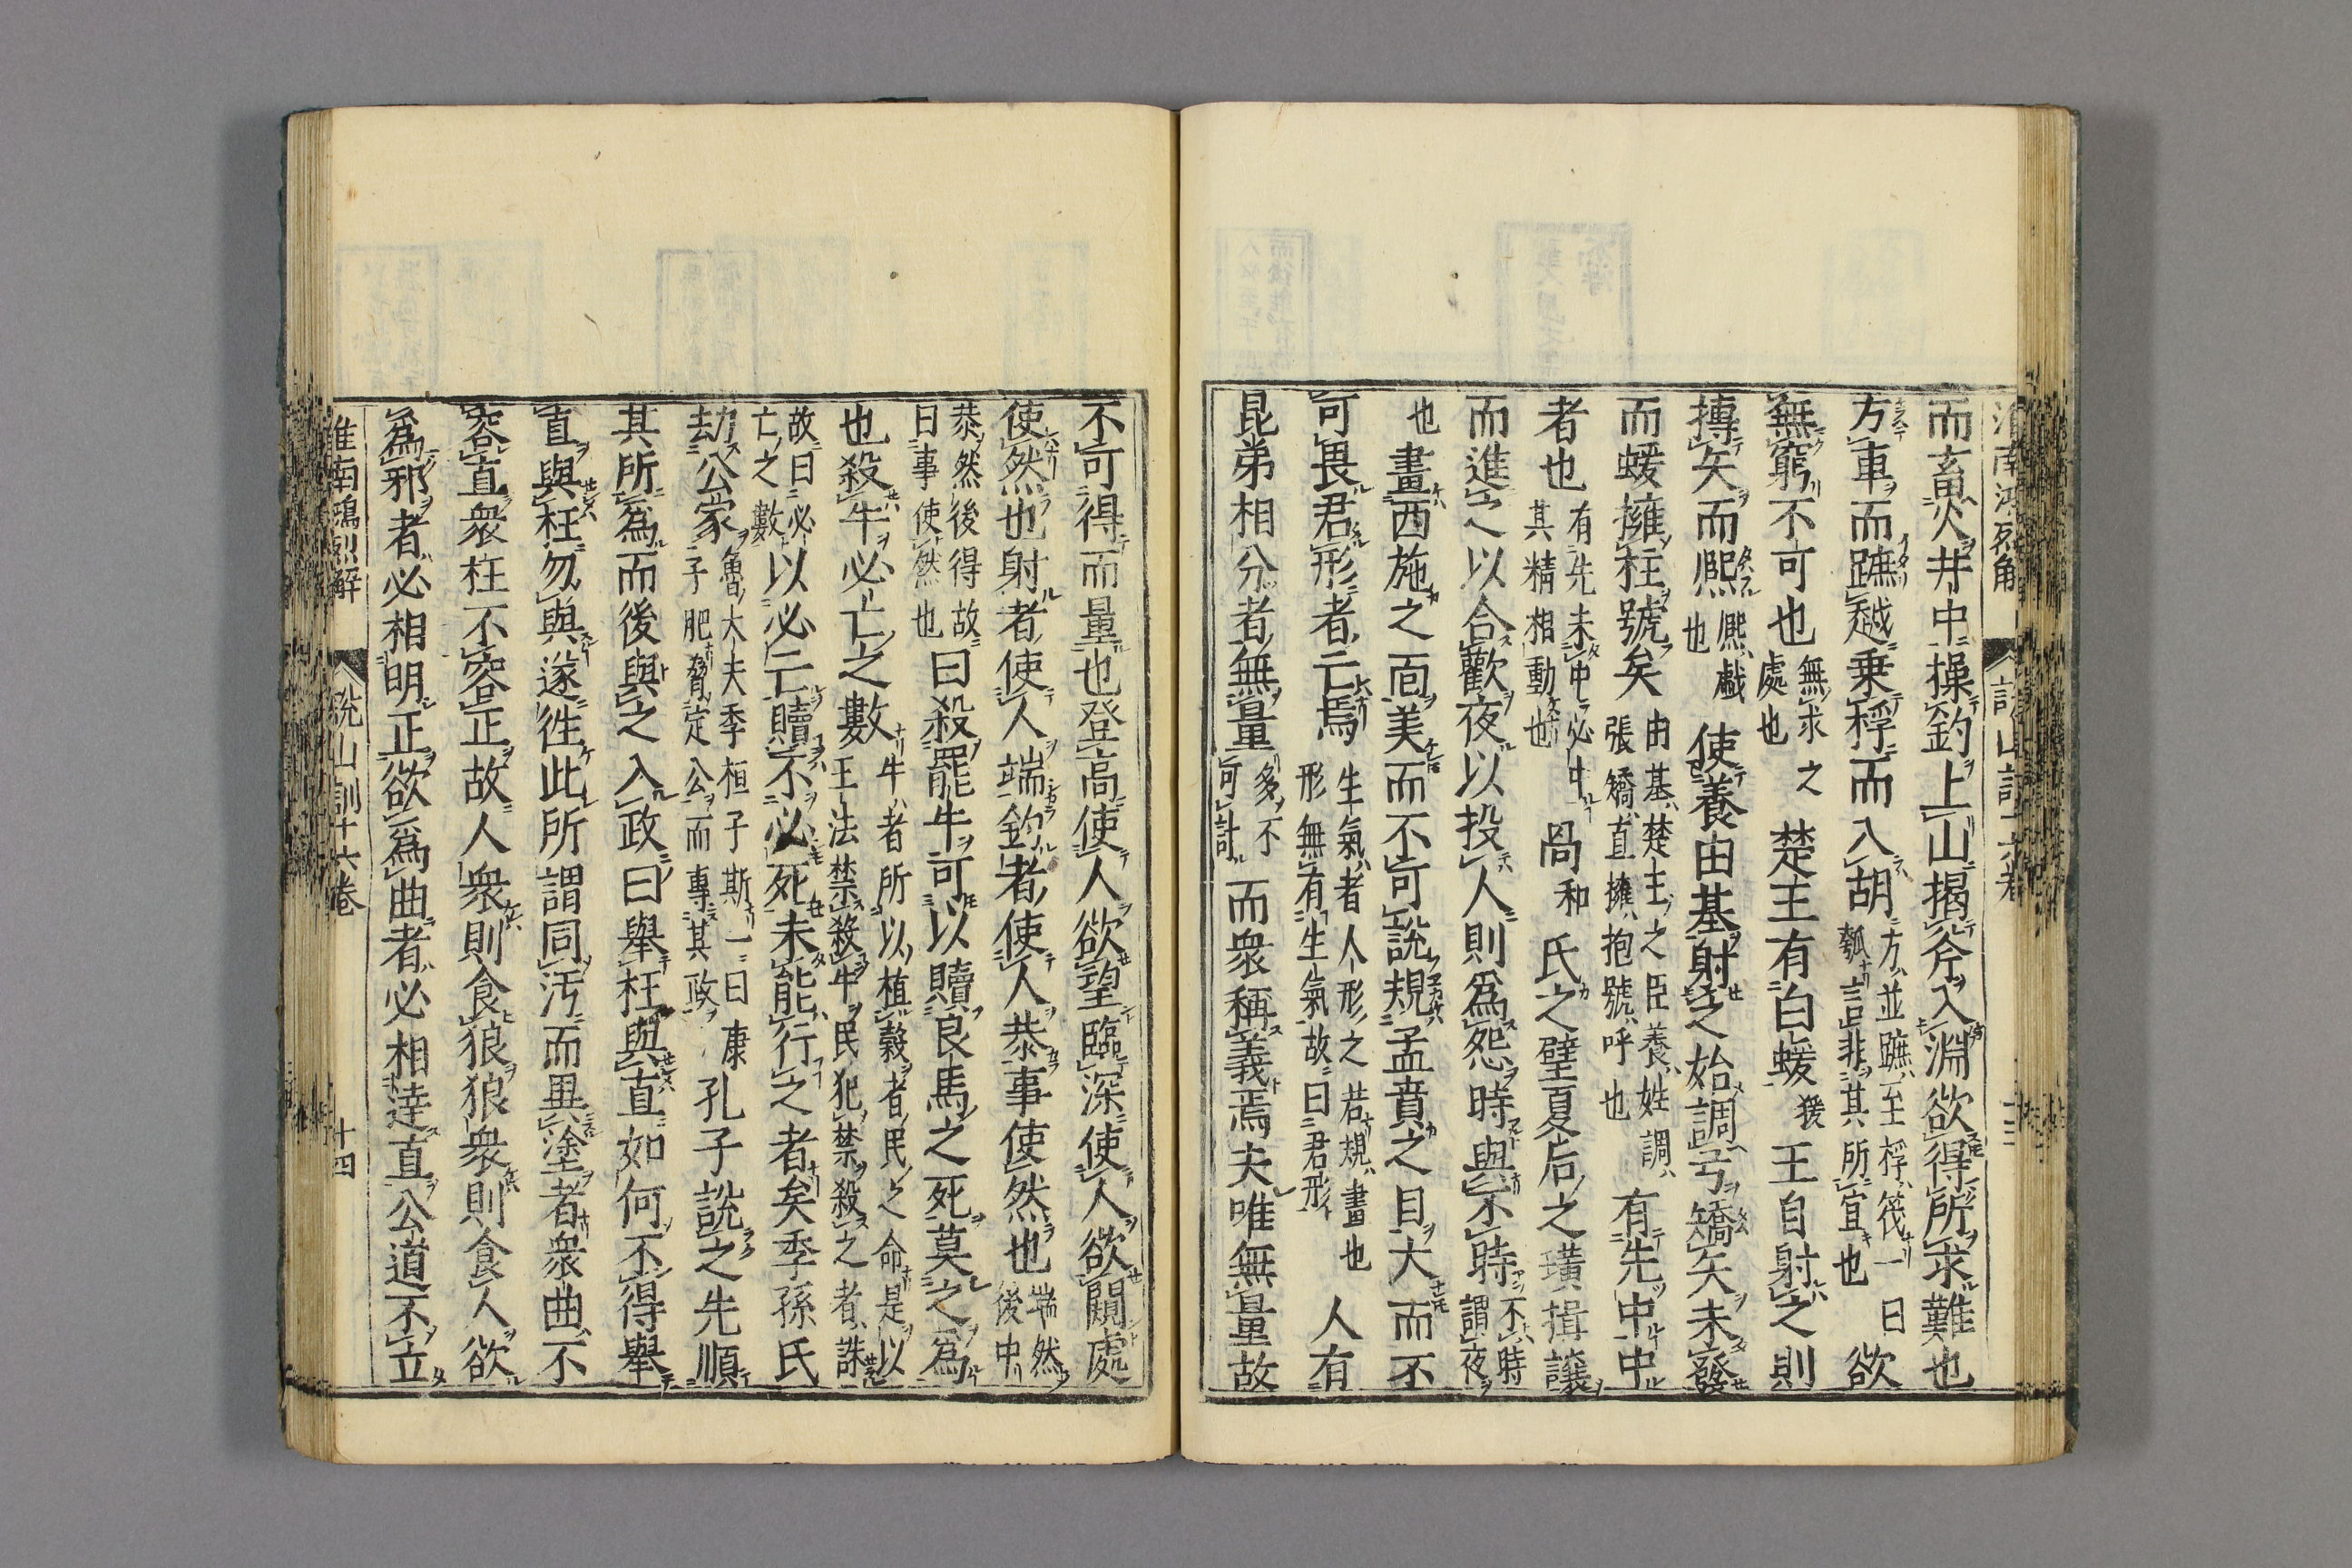 而畜火井中操釣上山揭斧入淵欲得所求難也
方車而蹠越乗桴而入胡方並蹠至桴筏一曰瓠言非其所宜也欲
無窮不可也無求之處也楚王有白蝯猨王自射之則
搏矢而熈熈戲也使養由基射之始調弓矯矢未發
而蝯擁柱號矣由基楚王之臣養姓調張矯直擁抱號呼也有先中中
者也有先未中必中其精相動也咼和氏之璧夏后之璜揖讓
而進之以合歡夜以投人則爲怨時與不時不時謂夜
也畫西施之面美而不可說規孟賁之目大而不
可畏君形者亡焉生氣者人形之若規畫也形無有生氣故曰君形人有
昆弟相分者無量多不可計而衆稱義焉夫唯無量故
不可得而量也登高使人欲望臨深使人欲闚處
使然也射者使人端釣者使人恭事使然也端然後中
恭然後得故曰事使然也曰殺罷牛可以贖良馬之死莫之爲
也殺牛必亡之數牛者所以植穀者民之命是以王法禁殺牛民犯禁殺之者誅
故曰必亡之數以必亡贖不必死未能行之者矣季孫氏
劫公家魯大夫季桓子斯一曰康子肥脅定公而專其政孔子說之先順
其所爲而後與之入政曰舉枉與直如何不得舉
直與枉勿與遂徃此所謂同汚而異塗者衆曲不
容直衆枉不容正故人衆則食狼狼衆則食人欲
爲邪者必相明正欲爲曲者必相達直公道不立
淮南鴻烈解 說山訓十六卷 十四